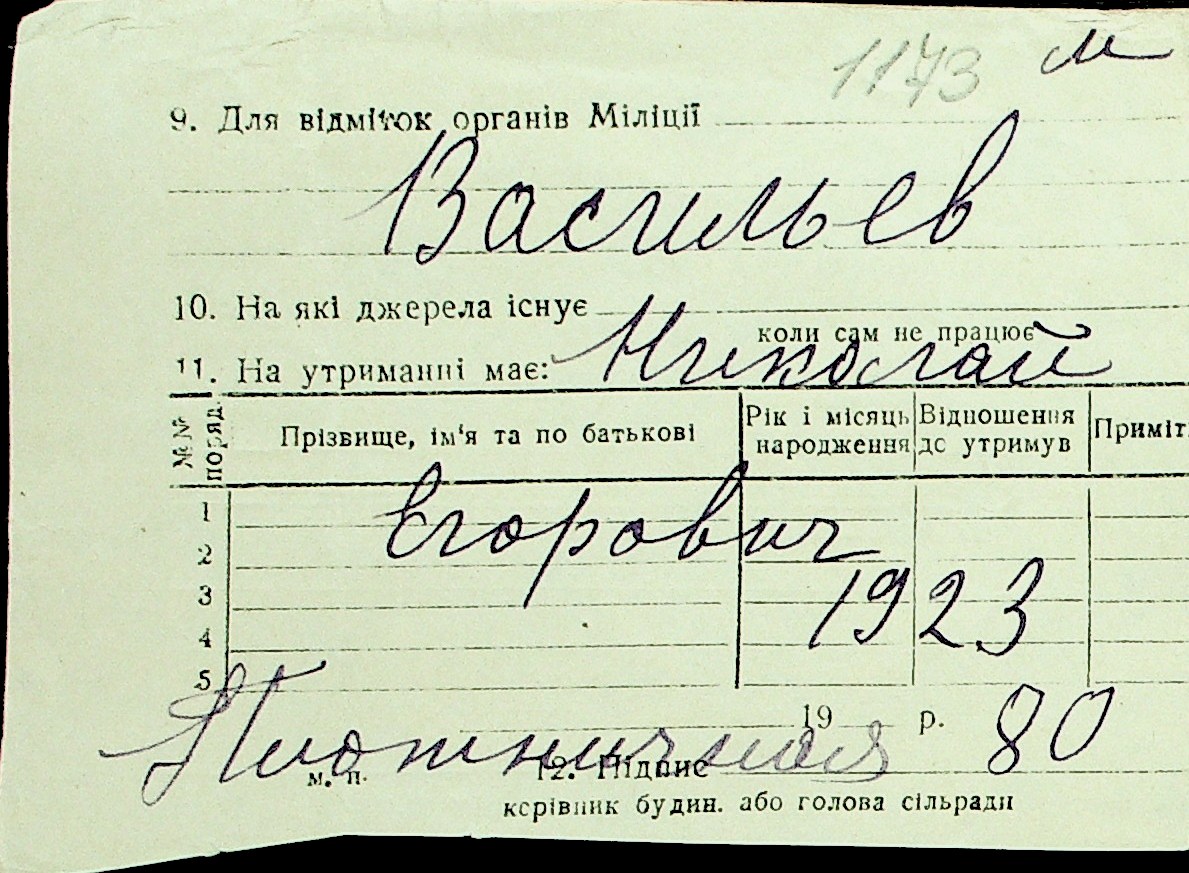 1173 м
9. Для відміток органів Міліції
Васильев
10. На які джерела існує
коли сам не працює
11. На утриманні має: Николай
№№ поряд. Прізвище, ім'я та по батькові Рік і місяць народження Відношення до утримув Приміт.
1
Егорович
2
3 1923
4
5
19 р. 80
Плотничная
м. п. 12. Підпис
керівник будин. або голова сільради